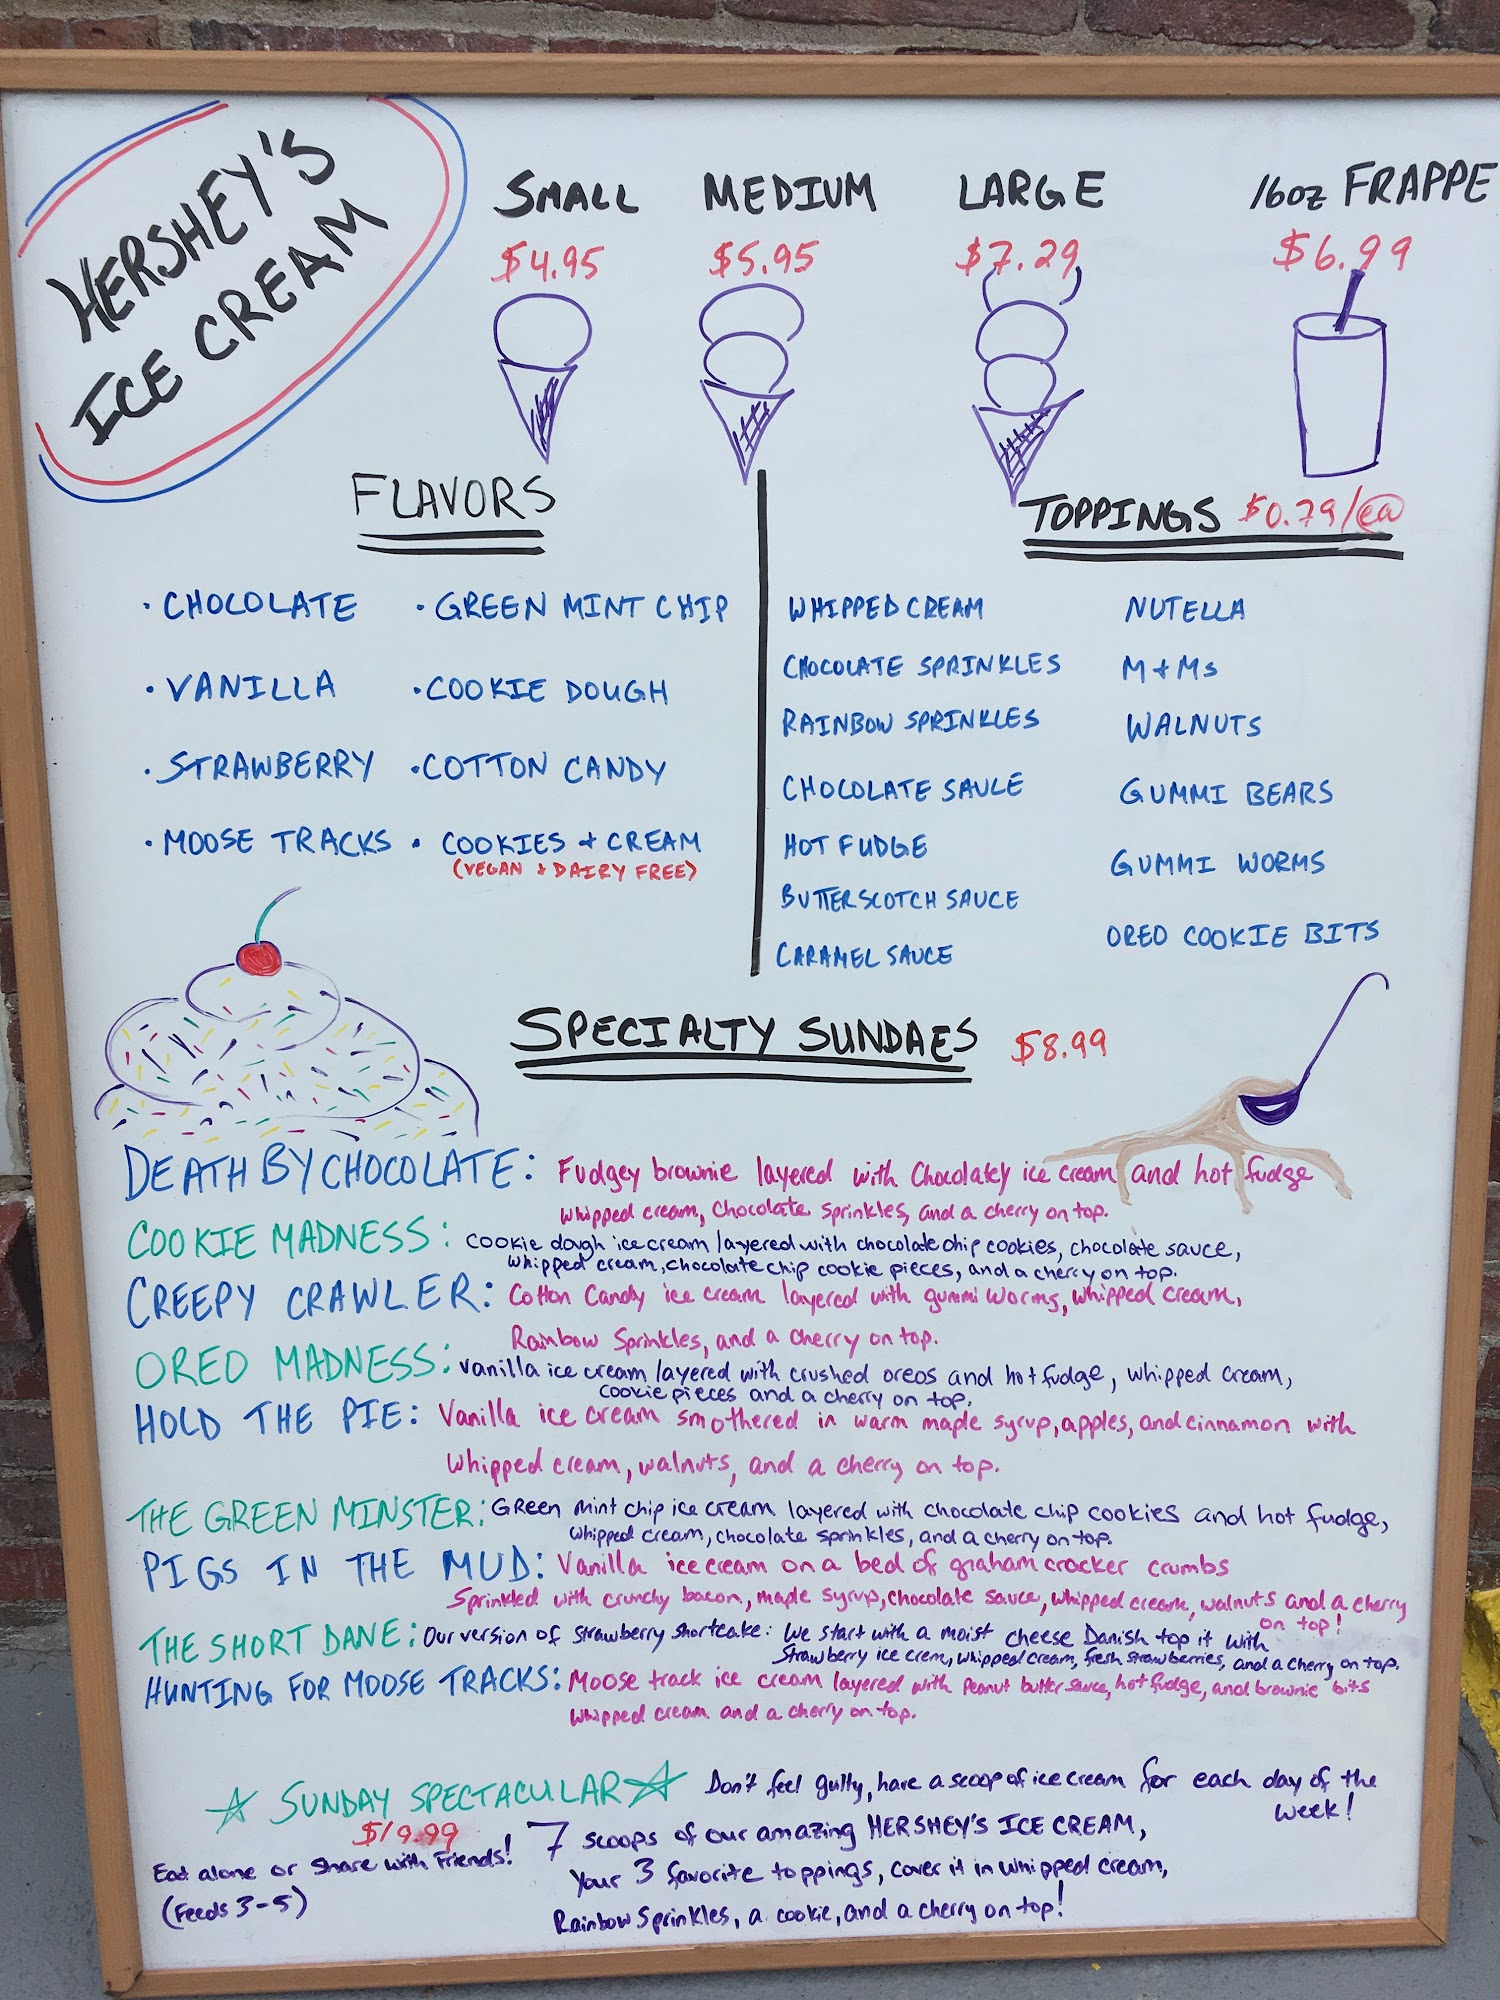 HERSHEY'S
ICE CREAM
SMALL
$4.95
MEDIUM
$5.95
LARGE
$7.29
16oz FRAPPE
$6.99
FLAVORS
· CHOCOLATE
· GREEN MINT CHIP
· VANILLA
· COOKIE DOUGH
· STRAWBERRY
· COTTON CANDY
· MOOSE TRACKS
· COOKIES + CREAM
(VEGAN + DAIRY FREE)
TOPPINGS $0.79/ea
WHIPPED CREAM
CHOCOLATE SPRINKLES
RAINBOW SPRINKLES
CHOCOLATE SAUCE
HOT FUDGE
BUTTERSCOTCH SAUCE
CARAMEL SAUCE
NUTELLA
M+Ms
WALNUTS
GUMMI BEARS
GUMMI WORMS
OREO COOKIE BITS
SPECIALTY SUNDAES $8.99
DEATH BY CHOCOLATE: Fudgey brownie layered with Chocolatey ice cream and hot fudge
whipped cream, Chocolate sprinkles, and a cherry on top.
COOKIE MADNESS: cookie dough ice cream layered with chocolate chip cookies, chocolate sauce,
whipped cream, chocolate chip cookie pieces, and a cherry on top.
CREEPY CRAWLER: Cotton Candy ice cream layered with gummi worms, whipped cream,
Rainbow Sprinkles, and a cherry on top.
OREO MADNESS: vanilla ice cream layered with crushed oreos and hot fudge, whipped cream,
cookie pieces and a cherry on top.
HOLD THE PIE: Vanilla ice cream smothered in warm maple syrup, apples, and cinnamon with
whipped cream, walnuts, and a cherry on top.
THE GREEN MINSTER: Green mint chip ice cream layered with chocolate chip cookies and hot fudge,
whipped cream, chocolate sprinkles, and a cherry on top.
PIGS IN THE MUD: Vanilla ice cream on a bed of graham cracker crumbs
Sprinkled with crunchy bacon, maple syrup, chocolate sauce, whipped cream, walnuts and a cherry
on top!
THE SHORT DANE: Our version of strawberry shortcake: We start with a moist cheese Danish top it with
Strawberry ice crem, whipped cream, fresh strawberries, and a cherry on top.
HUNTING FOR MOOSE TRACKS: Moose track ice cream layered with Peanut butter sauce, hot fudge, and brownie bits
whipped cream and a cherry on top.
SUNDAY SPECTACULAR
$19.99
Eat alone or share with Friends!
(Feeds 3-5)
Don't feel guilty, have a scoop of ice cream for each day of the
week!
7 scoops of our amazing HERSHEY'S ICE CREAM,
Your 3 favorite toppings, cover it in whipped cream,
Rainbow Sprinkles, a cookie, and a cherry on top!